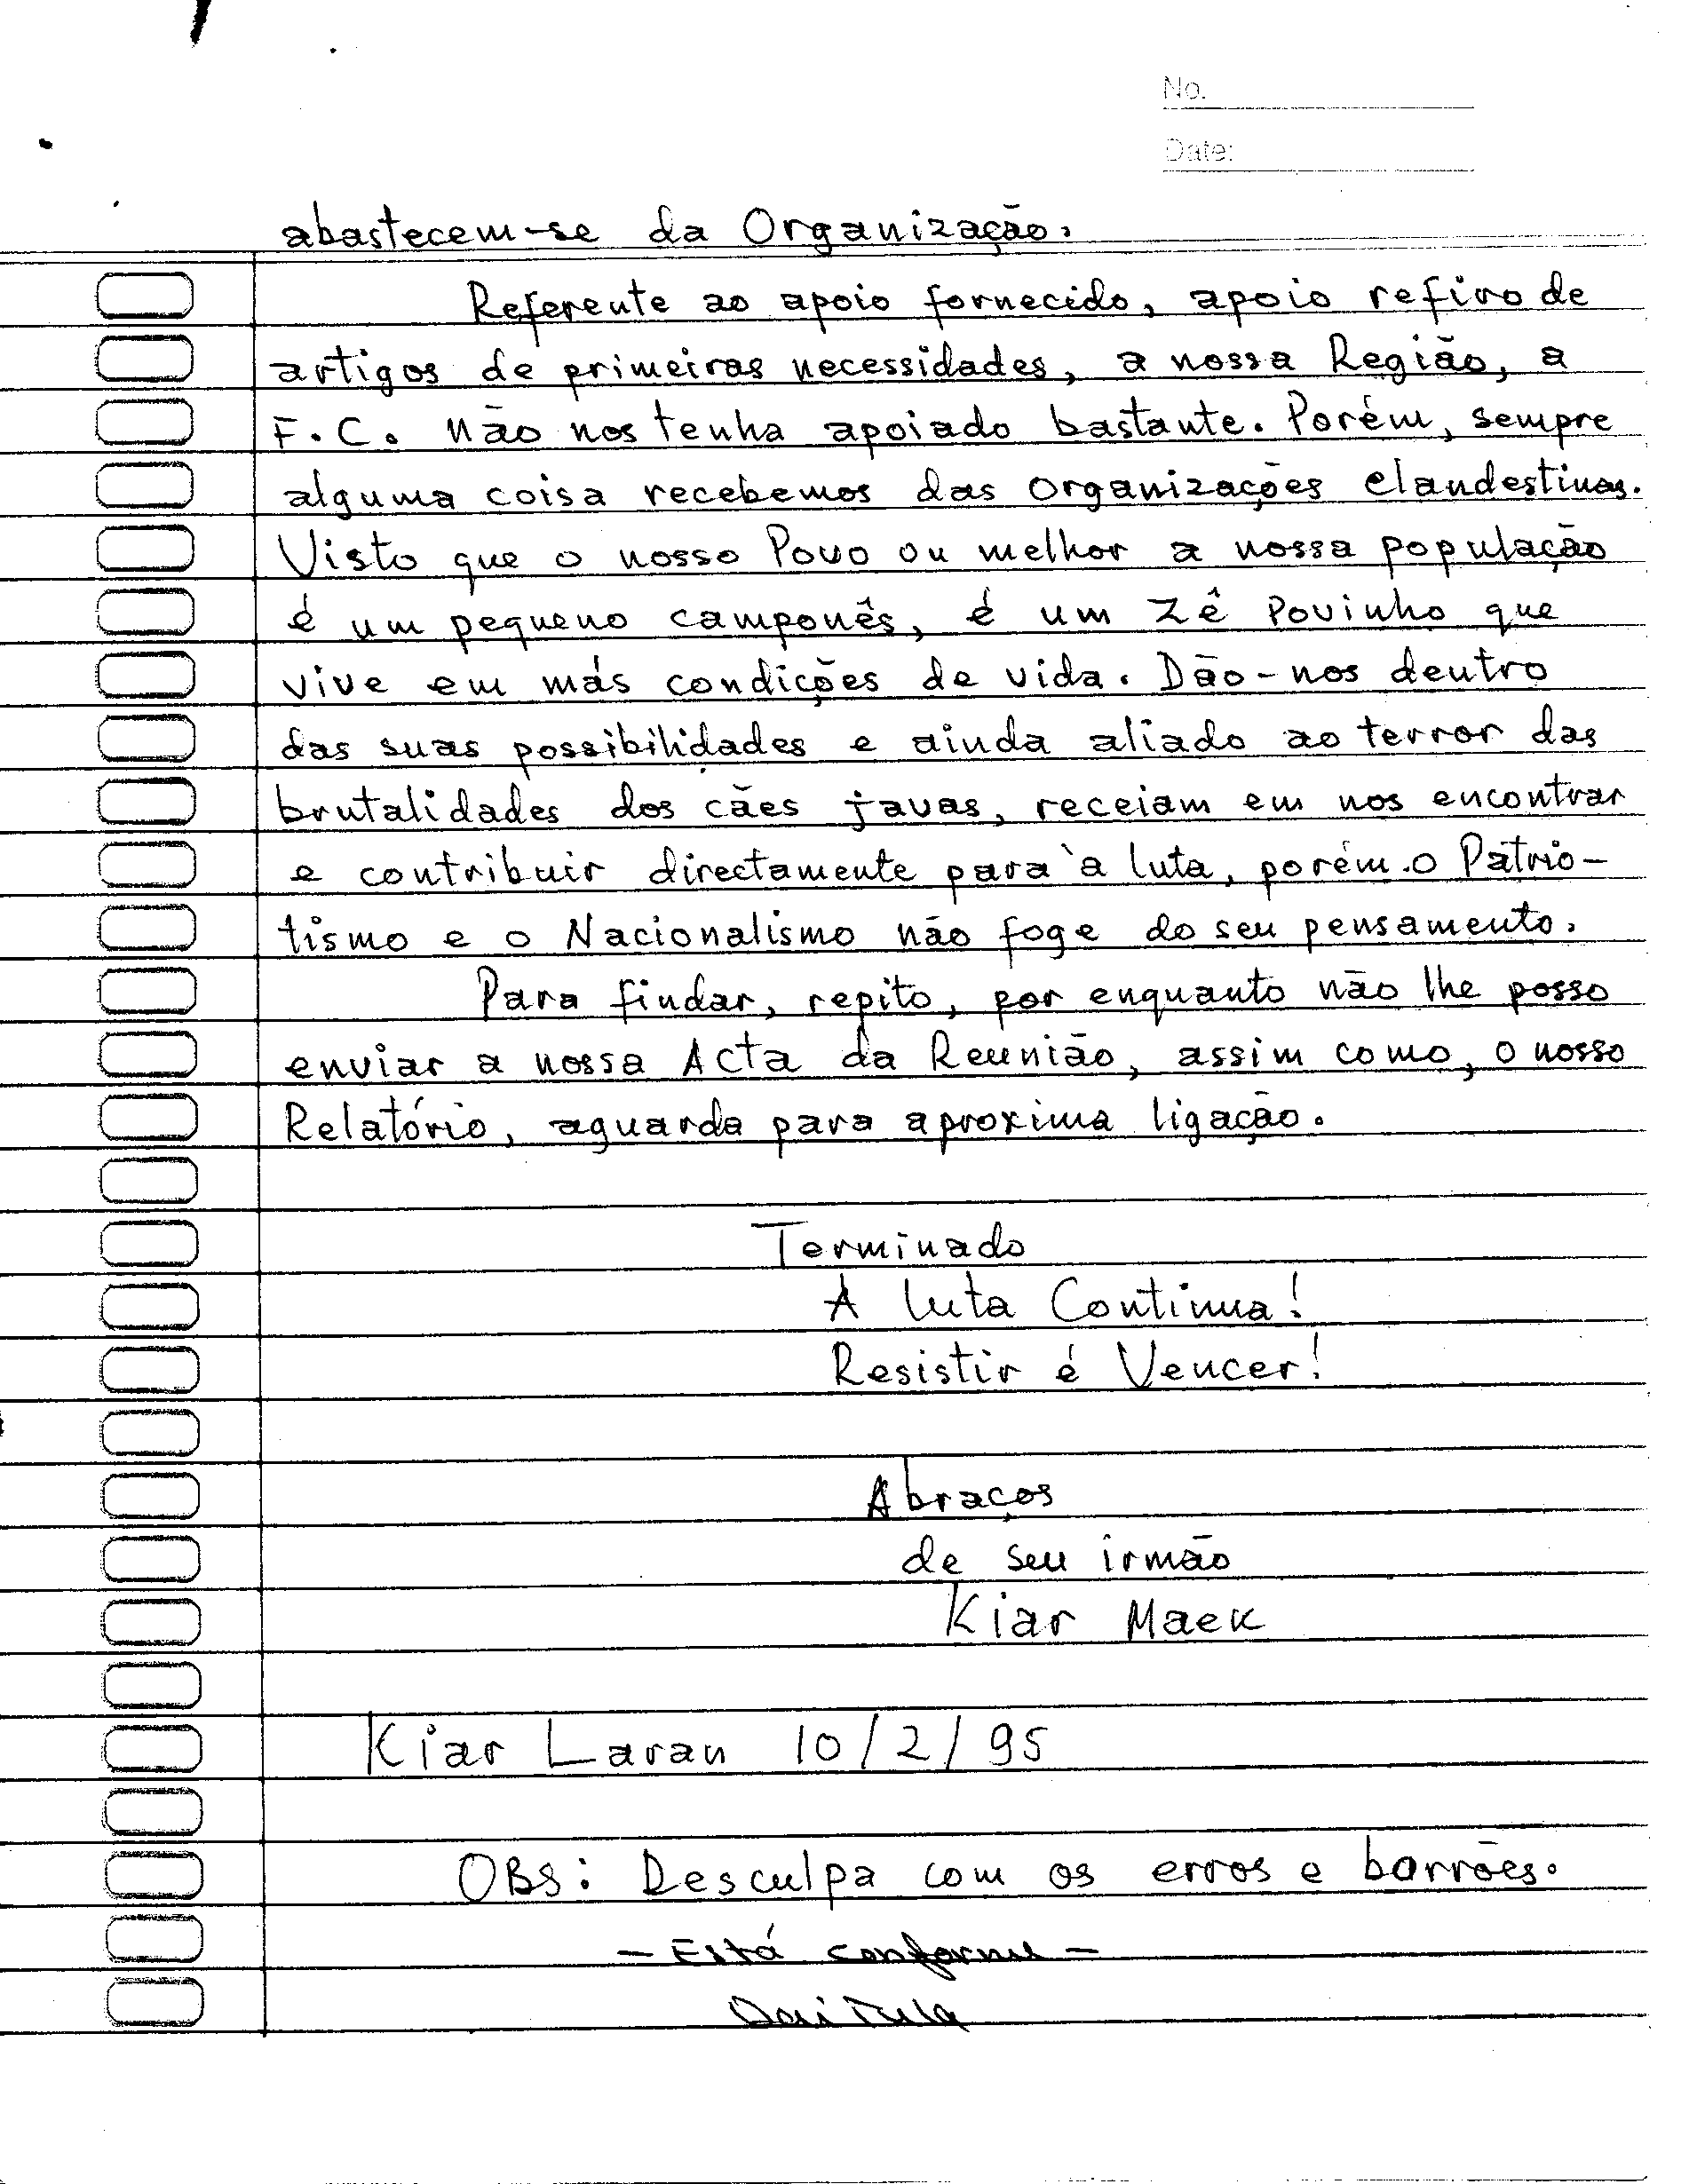 No.
Date:
abastecem-se da Organização.
Referente ao apoio fornecido, apoio refiro de
artigos de primeiras necessidades, a nossa Região, a
F.C. não nos tenha apoiado bastante. Porém, sempre
alguma coisa recebemos das organizações clandestinas.
Visto que o nosso Povo ou melhor a nossa população
é um pequeno camponês, é um Zê Povinho que
vive em más condições de vida. Dão-nos dentro
das suas possibilidades e ainda aliado ao terror das
brutalidades dos cães javas, receiam em nos encontrar
e contribuir directamente para à luta, porém o Patrio-
tismo e o Nacionalismo não foge do seu pensamento.
Para findar, repito, por enquanto não lhe posso
enviar a nossa Acta da Reunião, assim como, o nosso
Relatório, aguarda para aproxima ligação.
Terminado
A luta Continua!
Resistir é Vencer!
Abraços
de seu irmão
Kiar Maek
Kiar Laran 10/2/95
OBS: Desculpa com os erros e borrões.
- Está conforme -